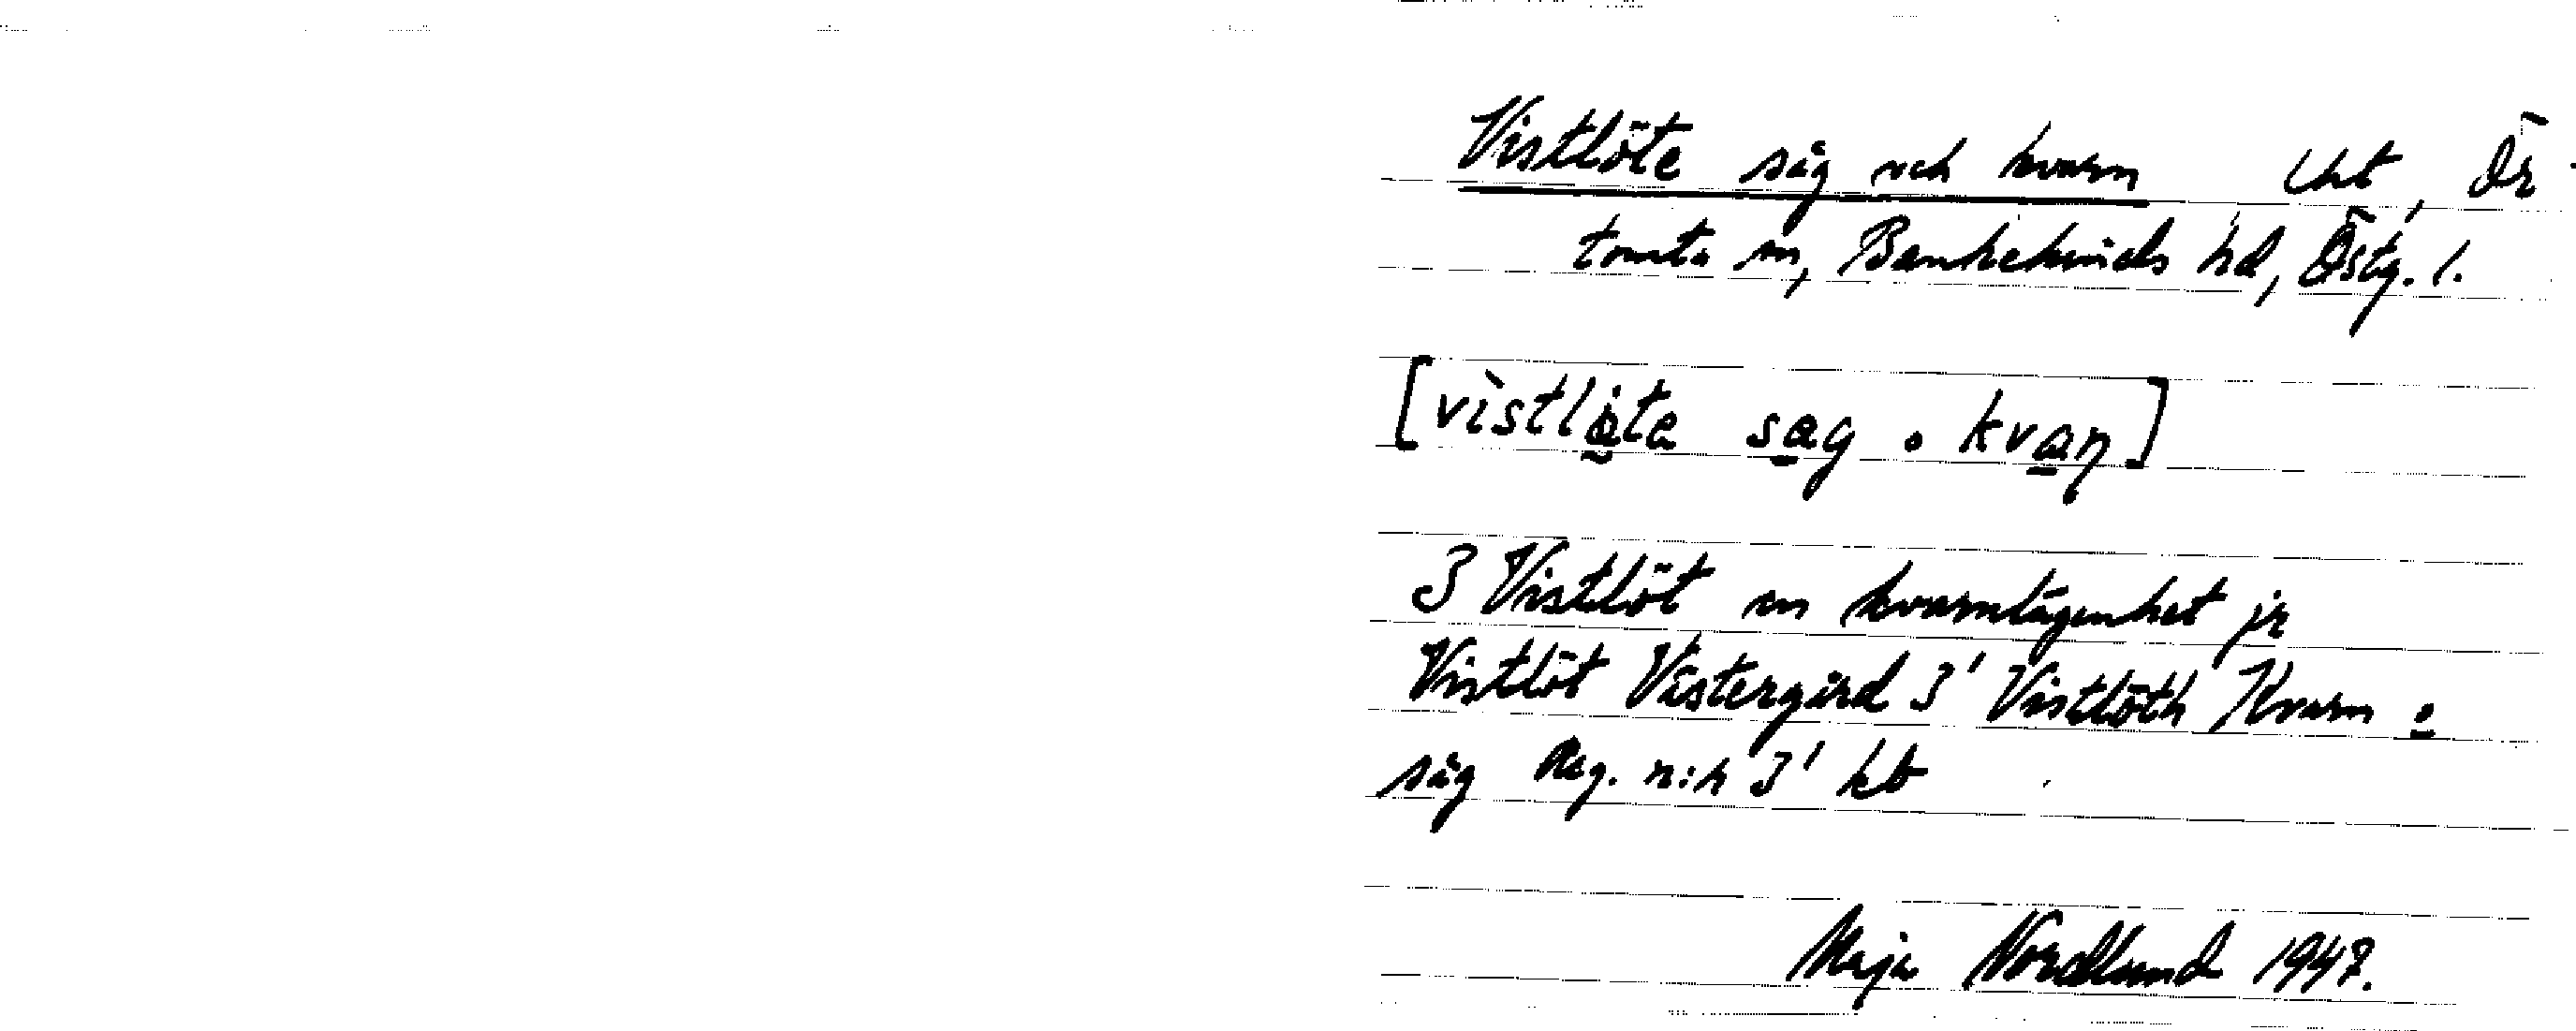 Vistlöte såg och kvarn Uht, Ör-
tomta sn, Bankekinds hd, Östg. l.
[vistlöte sag o kvaņ]
3 Vistlöt en kvarnlägenhet jr
Vistlöt Västergård 3' Vistlöth Kvarn o
såg Reg. n:r 3' kb
Maja Nordlund 1947.